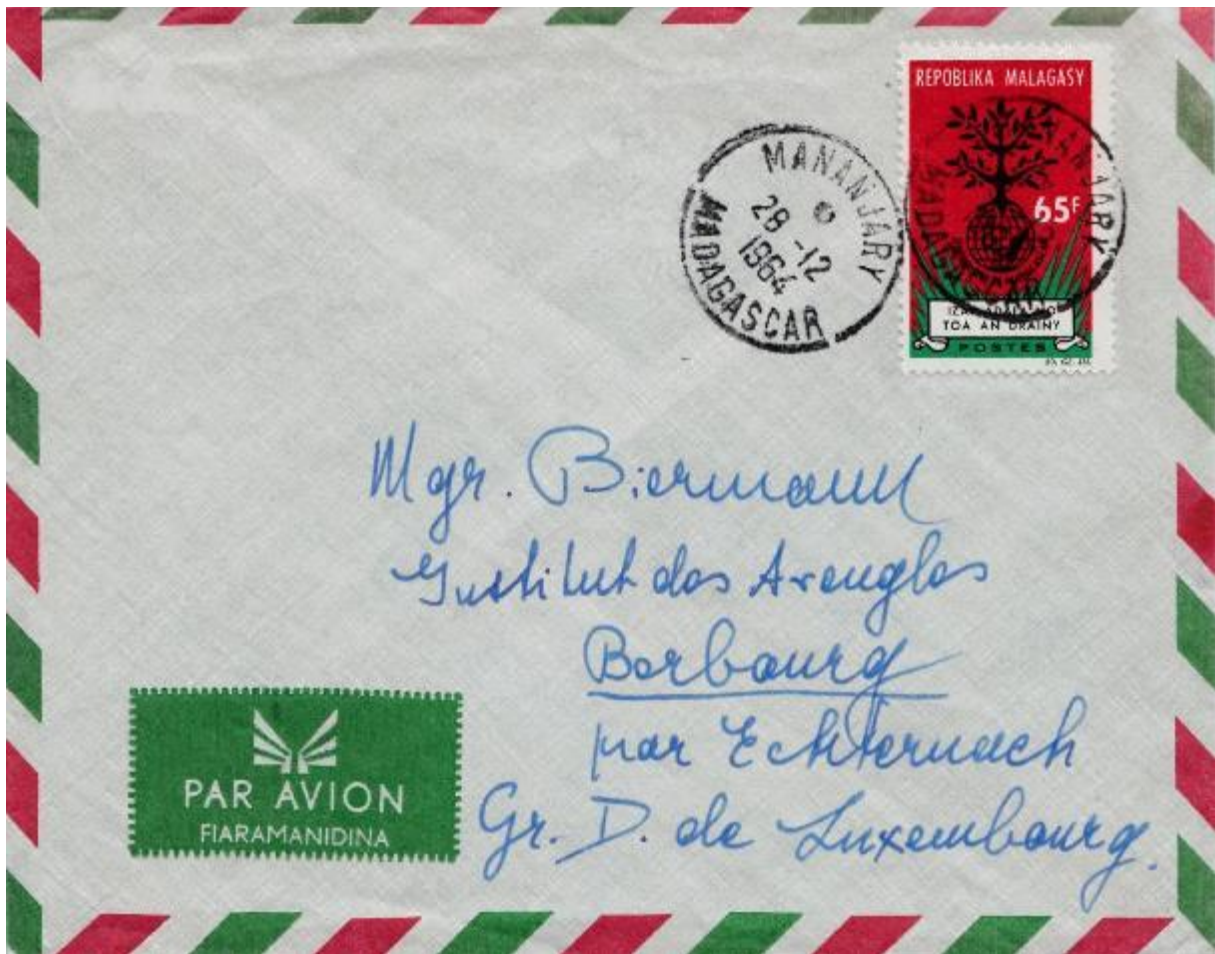 REPOBLIKA MALAGASY
65F
TOA AN DRAINY
POSTES
MANANJARY
28 -12
1964
MADAGASCAR
MANANJARY
MADAGASCAR
Mgr. Biermann
Institut des Aveugles
Berbourg
par Echternach
Gr. D. de Luxembourg.
PAR AVION
FIARAMANIDINA